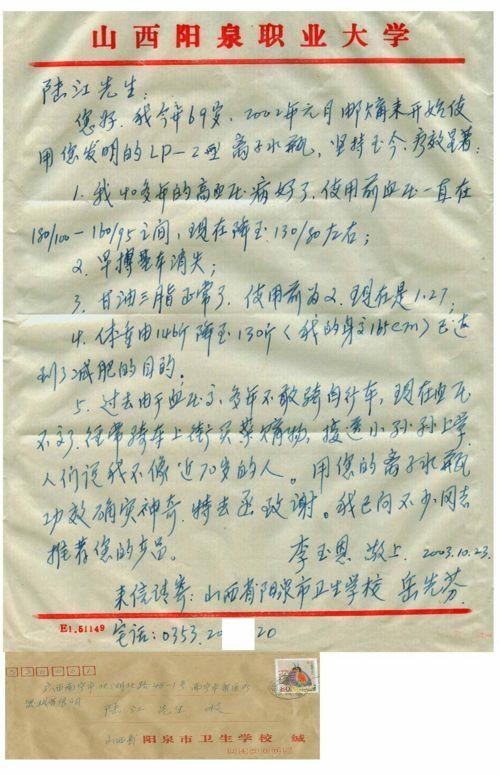 山西阳泉职业大学
陆江先生:
您好.我今年69岁,2002年元月邮购来开始使
用您发明的LP-2型离子水瓶,坚持至今,疗效显著:
1.我40多年的高血压病好了.使用前血压一直在
180/100-160/95之间,现在降至130/80左右;
2.早搏基本消失;
3.甘油三脂正常了.使用前为2.现在是1.27;
4.体重由146斤降至130斤(我的身高165cm)已达
到了减肥的目的.
5.过去由于血压高,多年不敢骑自行车,现在血压
不高了.经常骑车上街买菜购物,接送小孙孙上学
人们说我不像近70岁的人。用您的离子水瓶
功效确实神奇.特去函致谢。我已向不少同志
推荐您的产品。
李玉恩 敬上.2003.10.23.
来信请寄:山西省阳泉市卫生学校 岳先芬.
E1.51149
电话:0353.20 20
广西南宁市 北路45-1号南宁市
陆江先生 收
山西省阳泉市卫生学校 缄